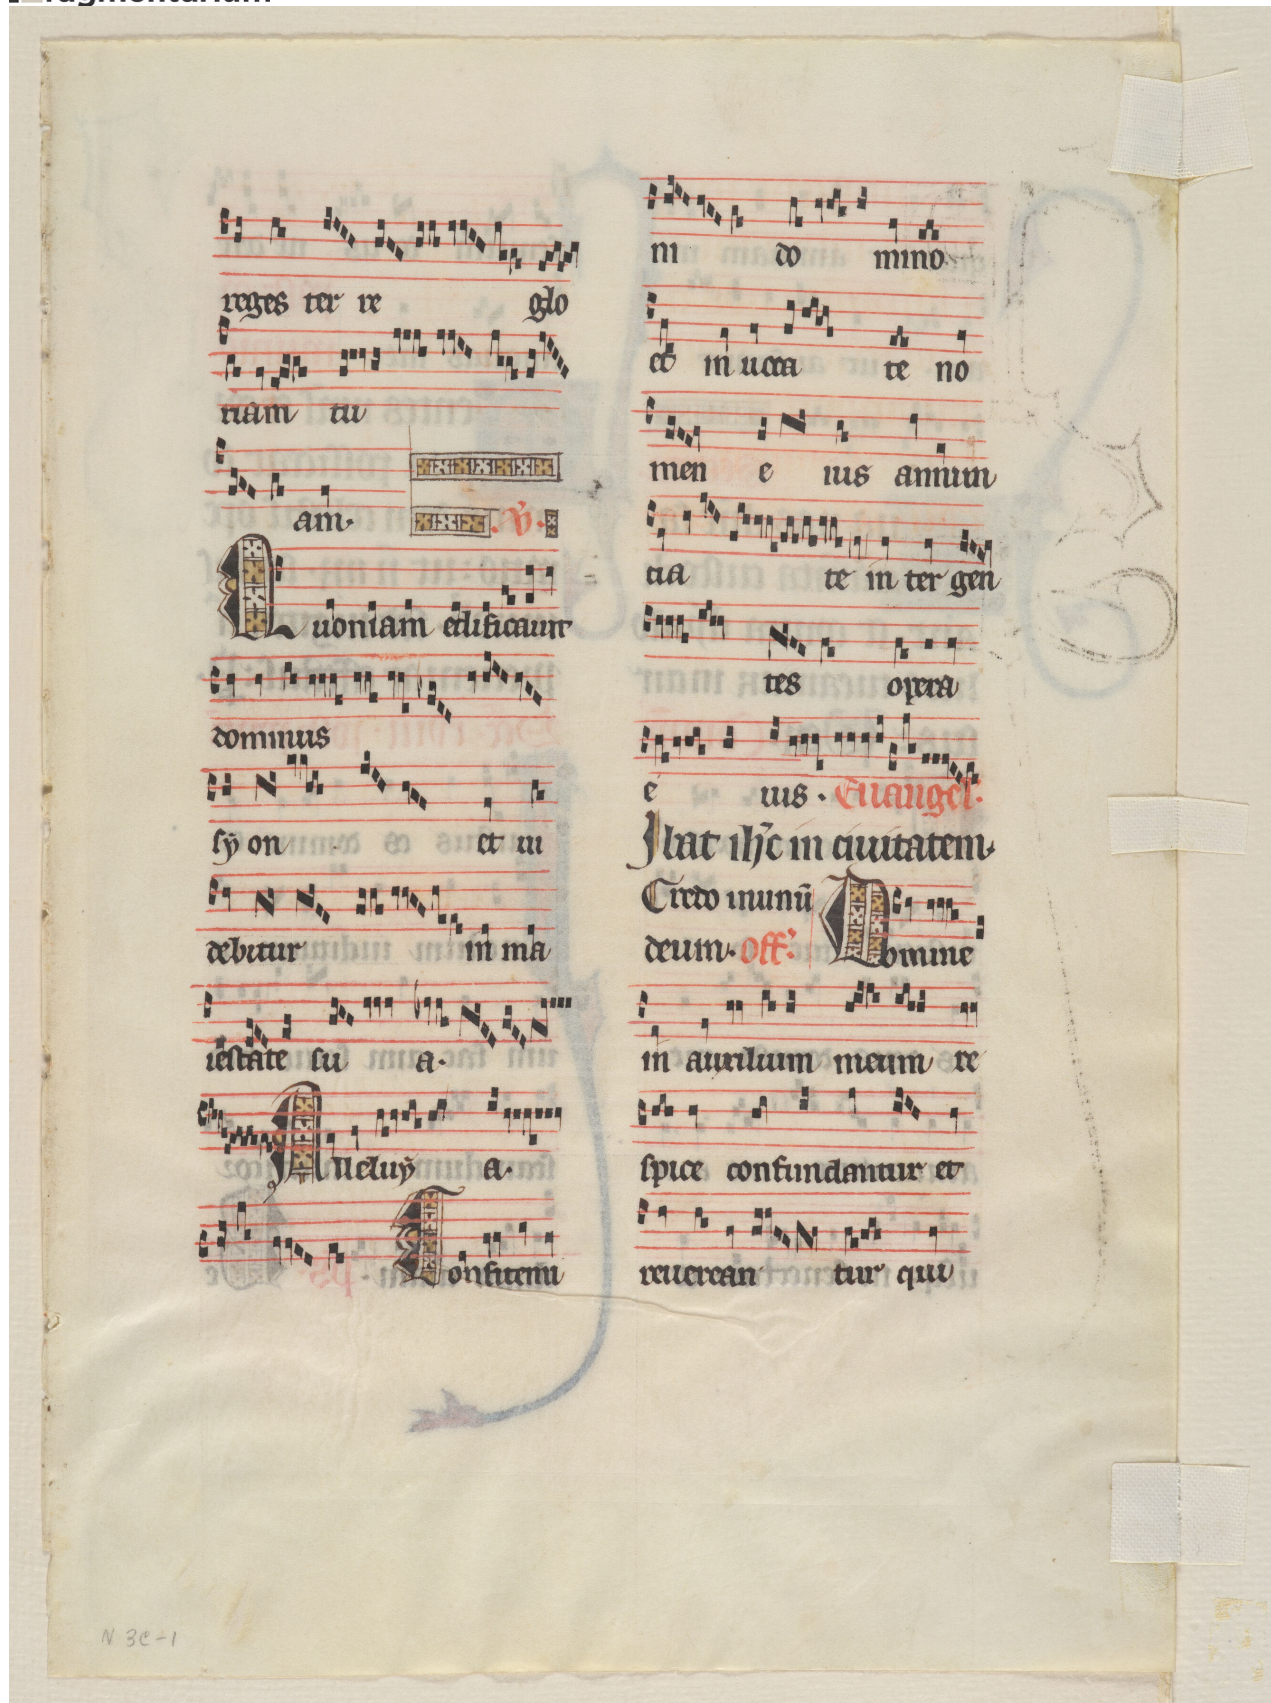 reges ter re glo
riam tu
am. .V̉.
Quoniam edificauit
dominus
sẏ on et ui
debitur in ma
iestate su a.
Alleluẏ a.
Confitemi
ni do mino
et inuoca te no
men e ius annun
cia te in ter gen
tes opera
e ius . Euangel.
Ibat ih̅c in ciuitatem.
Credo inunū
deum. Off̉. Domine
in auxilium meum re
spice confundantur et
reuerean tur qui
N 3C-1